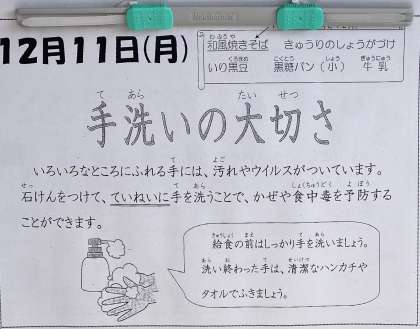 12月11日(月)
和風焼きそば きゅうりのしょうがづけ
いり黒豆 黒糖パン(小) 牛乳
手洗いの大切さ
いろいろなところにふれる手には、汚れやウイルスがついています。
石けんをつけて、ていねいに手を洗うことで、かぜや食中毒を予防する
ことができます。
給食の前はしっかり手を洗いましょう。
洗い終わった手は、清潔なハンカチや
タオルでふきましょう。